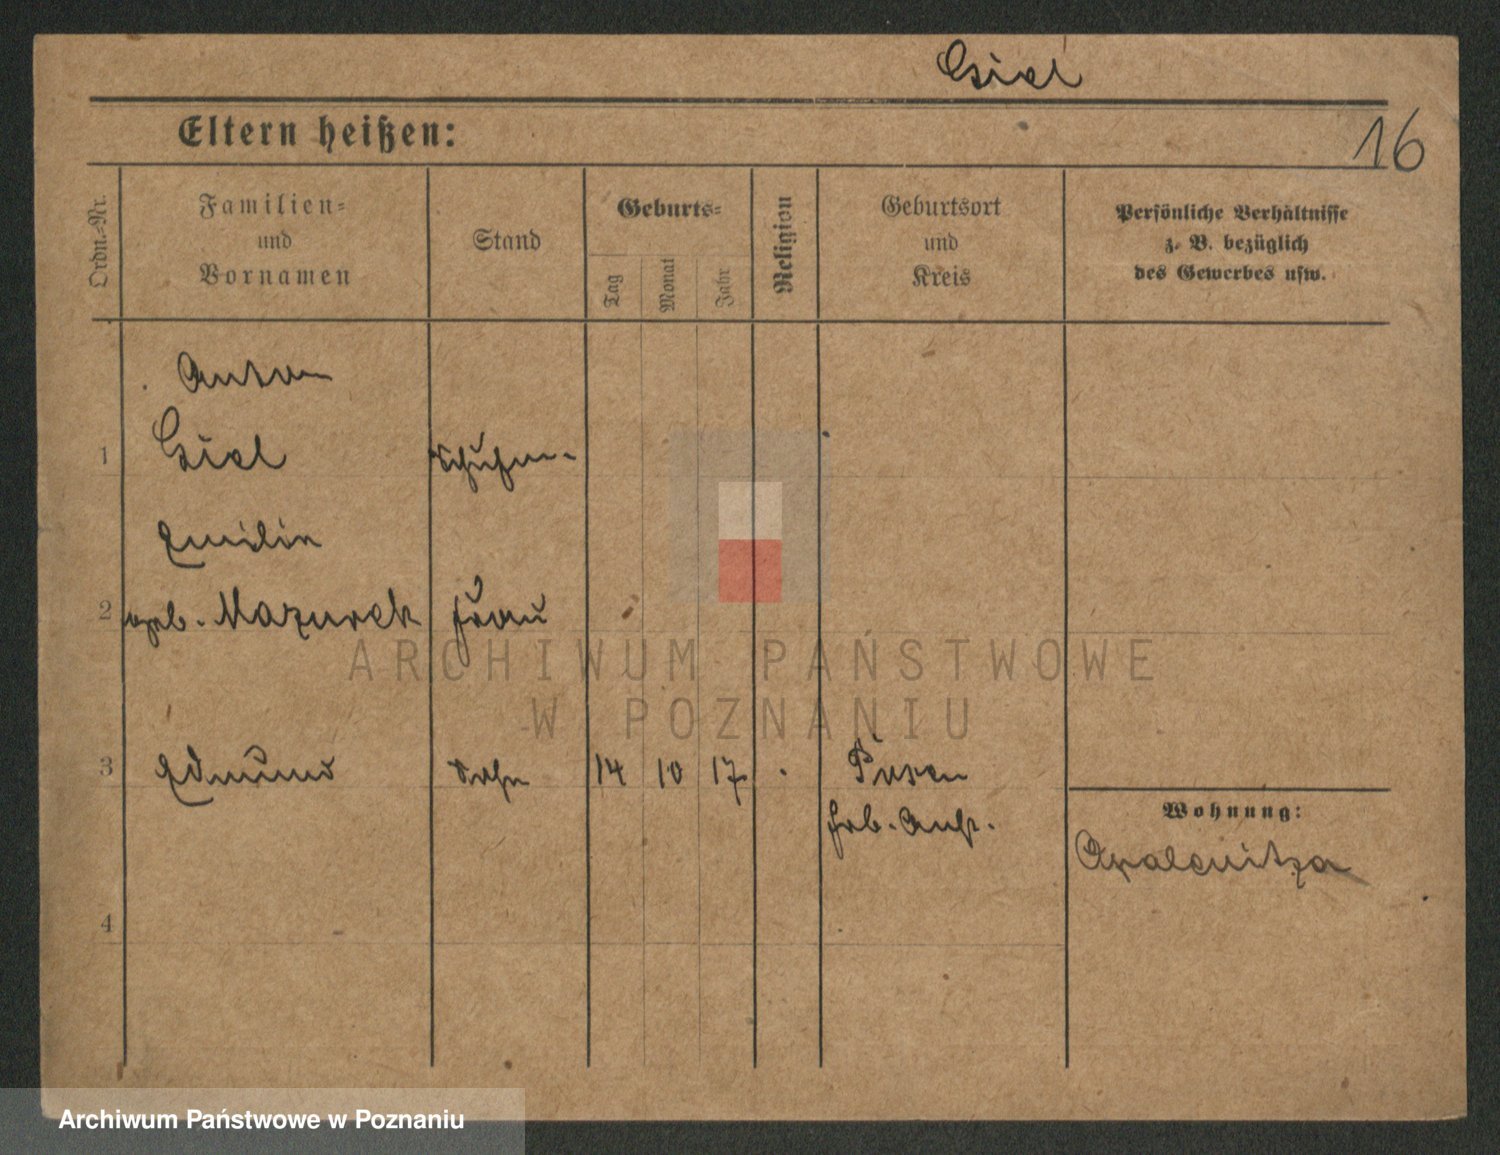 Gial
Eltern heißen:
16
Ordn.-Nr.
Familien-
und
Vornamen
Stand
Geburts-
Tag
Monat
Jahr
Religion
Geburtsort
und
Kreis
Persönliche Verhältnisse
z. B. bezüglich
des Gewerbes usw.
Anton
1 Gial Schuhm.
Emilie
2 geb. Mazurek Frau
ARCHIWUM PAŃSTWOWE
W POZNANIU
3 Edmund Sohn 14 10 17 Posen
Wohnung:
Opalenitza
4
Archiwum Państwowe w Poznaniu